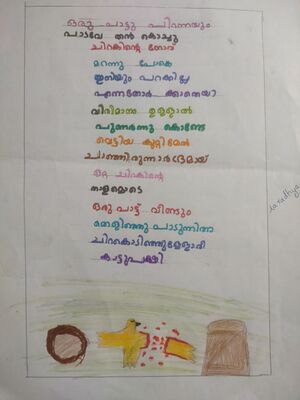 ഒരു പാട്ടു പിറന്നയും
പാടവേ തൻ കൊച്ചു
ചിറകിന്റെ നോവ്
മറന്നു പോകെ
ഇനിയും പറക്കില്ല
എന്നതോർ ക്കാതെയാ
വിരിമാനം ഉള്ളാൽ
പുണർന്നു കൊണ്ടേ
വെട്ടിയ കുറ്റിമേൽ
ചാഞ്ഞിരുന്നാർദ്രമായ്
ഒറ്റ ചിറകിന്റെ
താളമോടെ
ഒരു പാട്ട് വീണ്ടും
തെളിഞ്ഞു പാടുന്നിതാ
ചിറകൊടിഞ്ഞുള്ളോരീ
കാട്ടുപക്ഷി